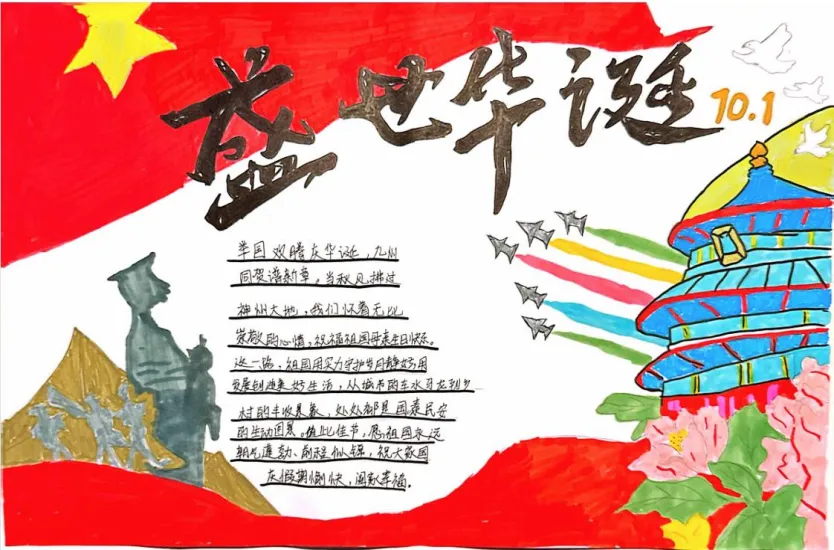 盛世华诞
10.1
举国欢腾庆华诞，九州
同贺谱新章，当秋风拂过
神州大地，我们怀着无比
崇敬的心情，祝福祖国母亲生日快乐。
这一路，祖国用实力守护岁月静好，用
发展创造美好生活，从城市的车水马龙到乡
村的丰收景象，处处都是国泰民安
的生动图景。值此佳节，愿祖国永远
朝气蓬勃、前程似锦，祝大家国
庆假期愉快，阖家幸福。